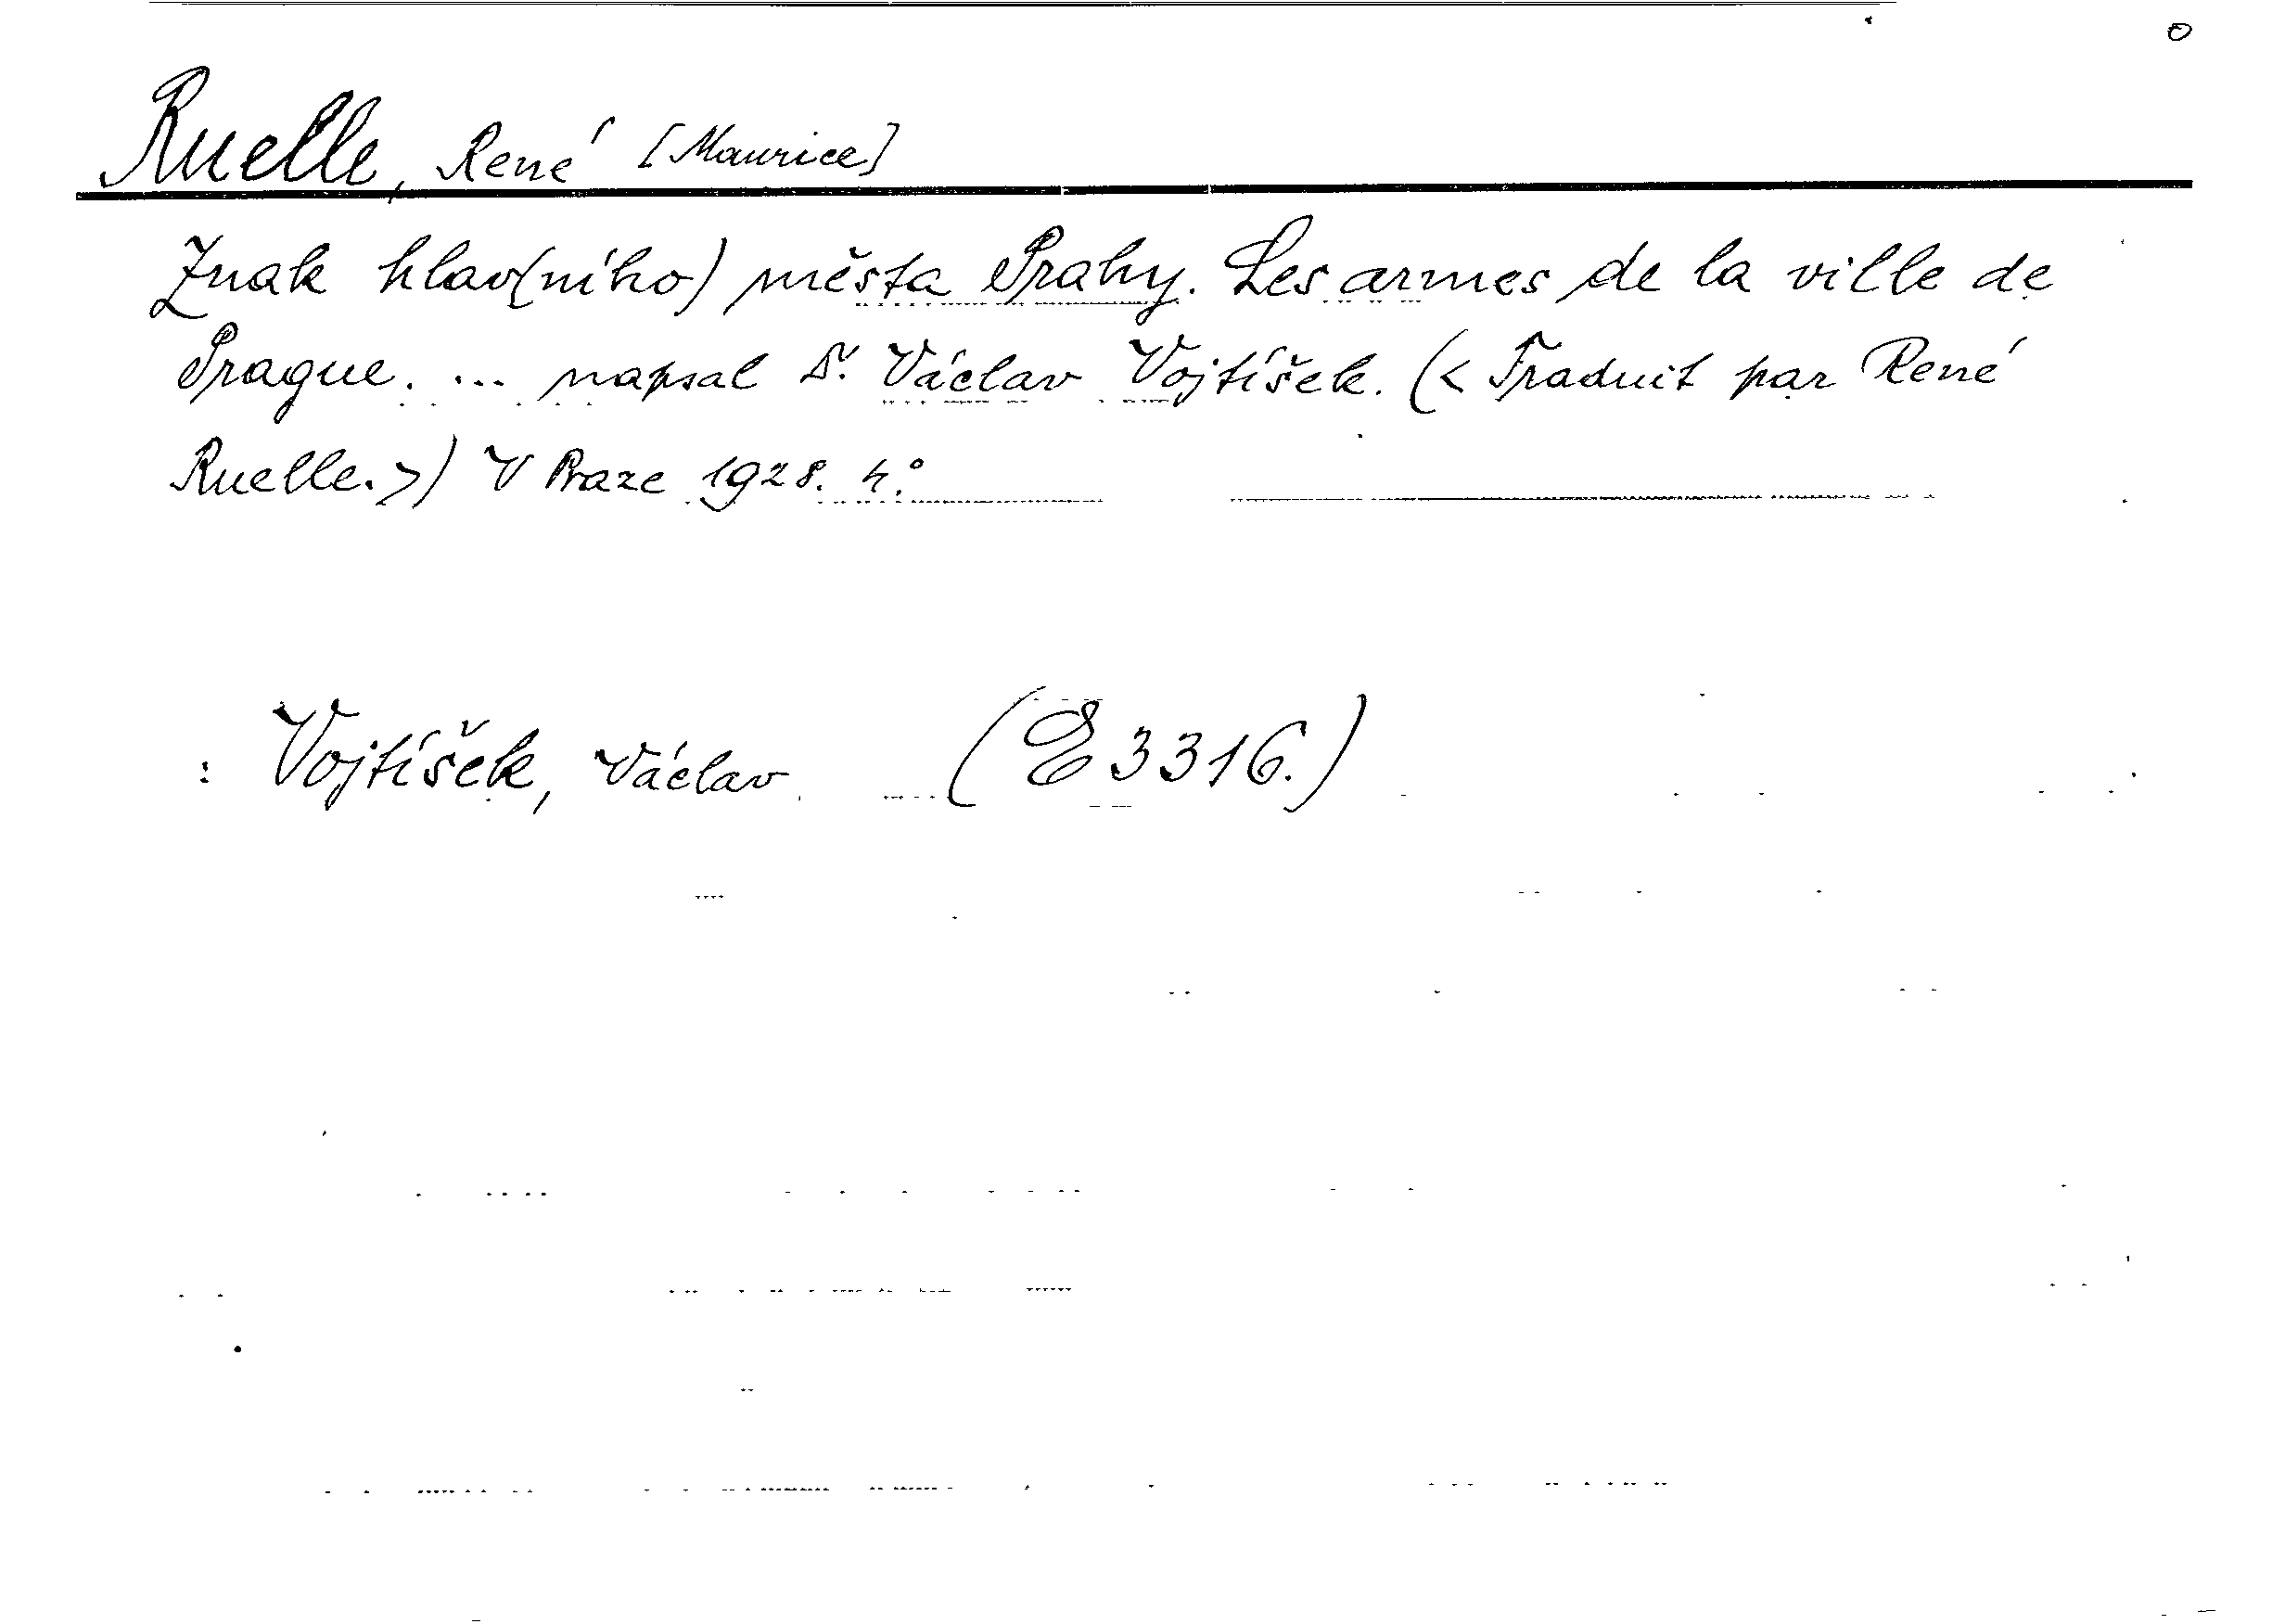 Ruelle, René [Maurice]
Znak hlav(ního) města Prahy. Les armes de la ville de
Prague. ... napsal Dr. Václav Vojtíšek. (< Traduit par René
Ruelle. >) V Praze 1928. 4.°
: Vojtíšek, Václav (E 3316.)